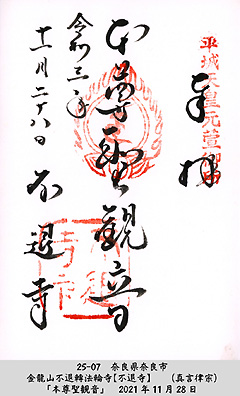 平城天皇元萱御所
奉拝
本尊聖観音
不退寺
令和三年
十一月二十八日
25-07　奈良県奈良市
金龍山不退轉法輪寺【不退寺】　（真言律宗）
「本尊聖観音」　2021年11月28日